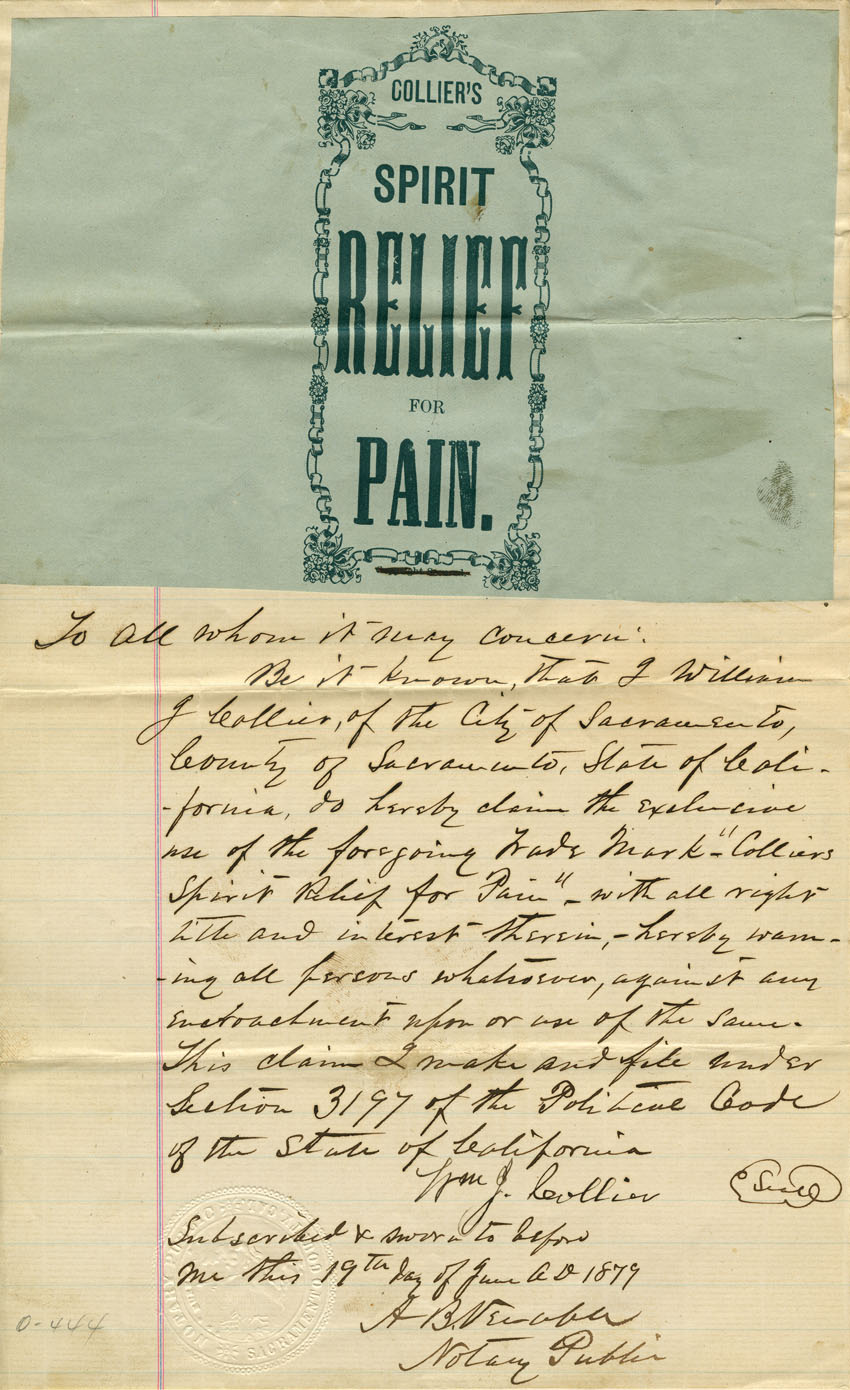 COLLIER'S
SPIRIT
RELIEF
FOR
PAIN.
To all whom it may concern:
Be it known, that I William
J Collier, of the City of Sacramento,
County of Sacramento, State of Cali-
-fornia, do hereby claim the exclusive
use of the foregoing Trade Mark - "Colliers
Spirit Relief for Pain" - with all right
title and interest therein, - hereby warn-
-ing all persons whatsoever, against any
encroachment upon or use of the same.
This claim I make and file under
Section 3197 of the Political Code
of the State of California
Wm J. Collier
Seal
Subscribed & sworn to before
me this 19th day of June A D 1879
A B Venable
Notary Public
SACRAMENTO
0-444